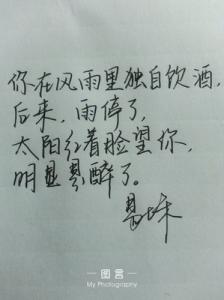 你在风雨里独自饮酒，
后来，雨停了，
太阳红着脸望你，
明显是醉了。
— 图言 —
My Photography